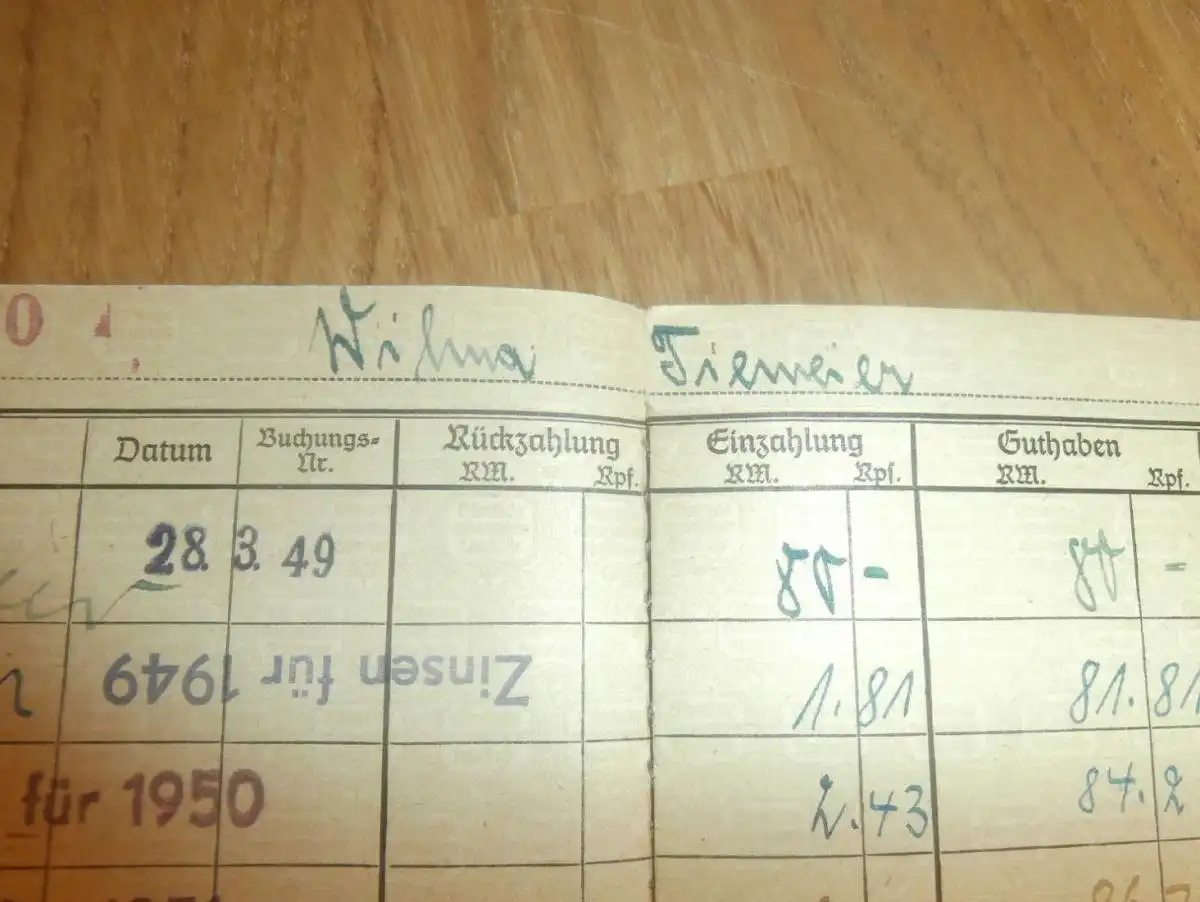 0
Wilma Tiemeier
Datum Buchungs- Rückzahlung Einzahlung Guthaben
Nr. RM. Rpf. RM. Rpf. RM. Rpf.
28. 3. 49 80 - 80 -
Zinsen für 1949 1.81 81.81
für 1950 2.43 84.2